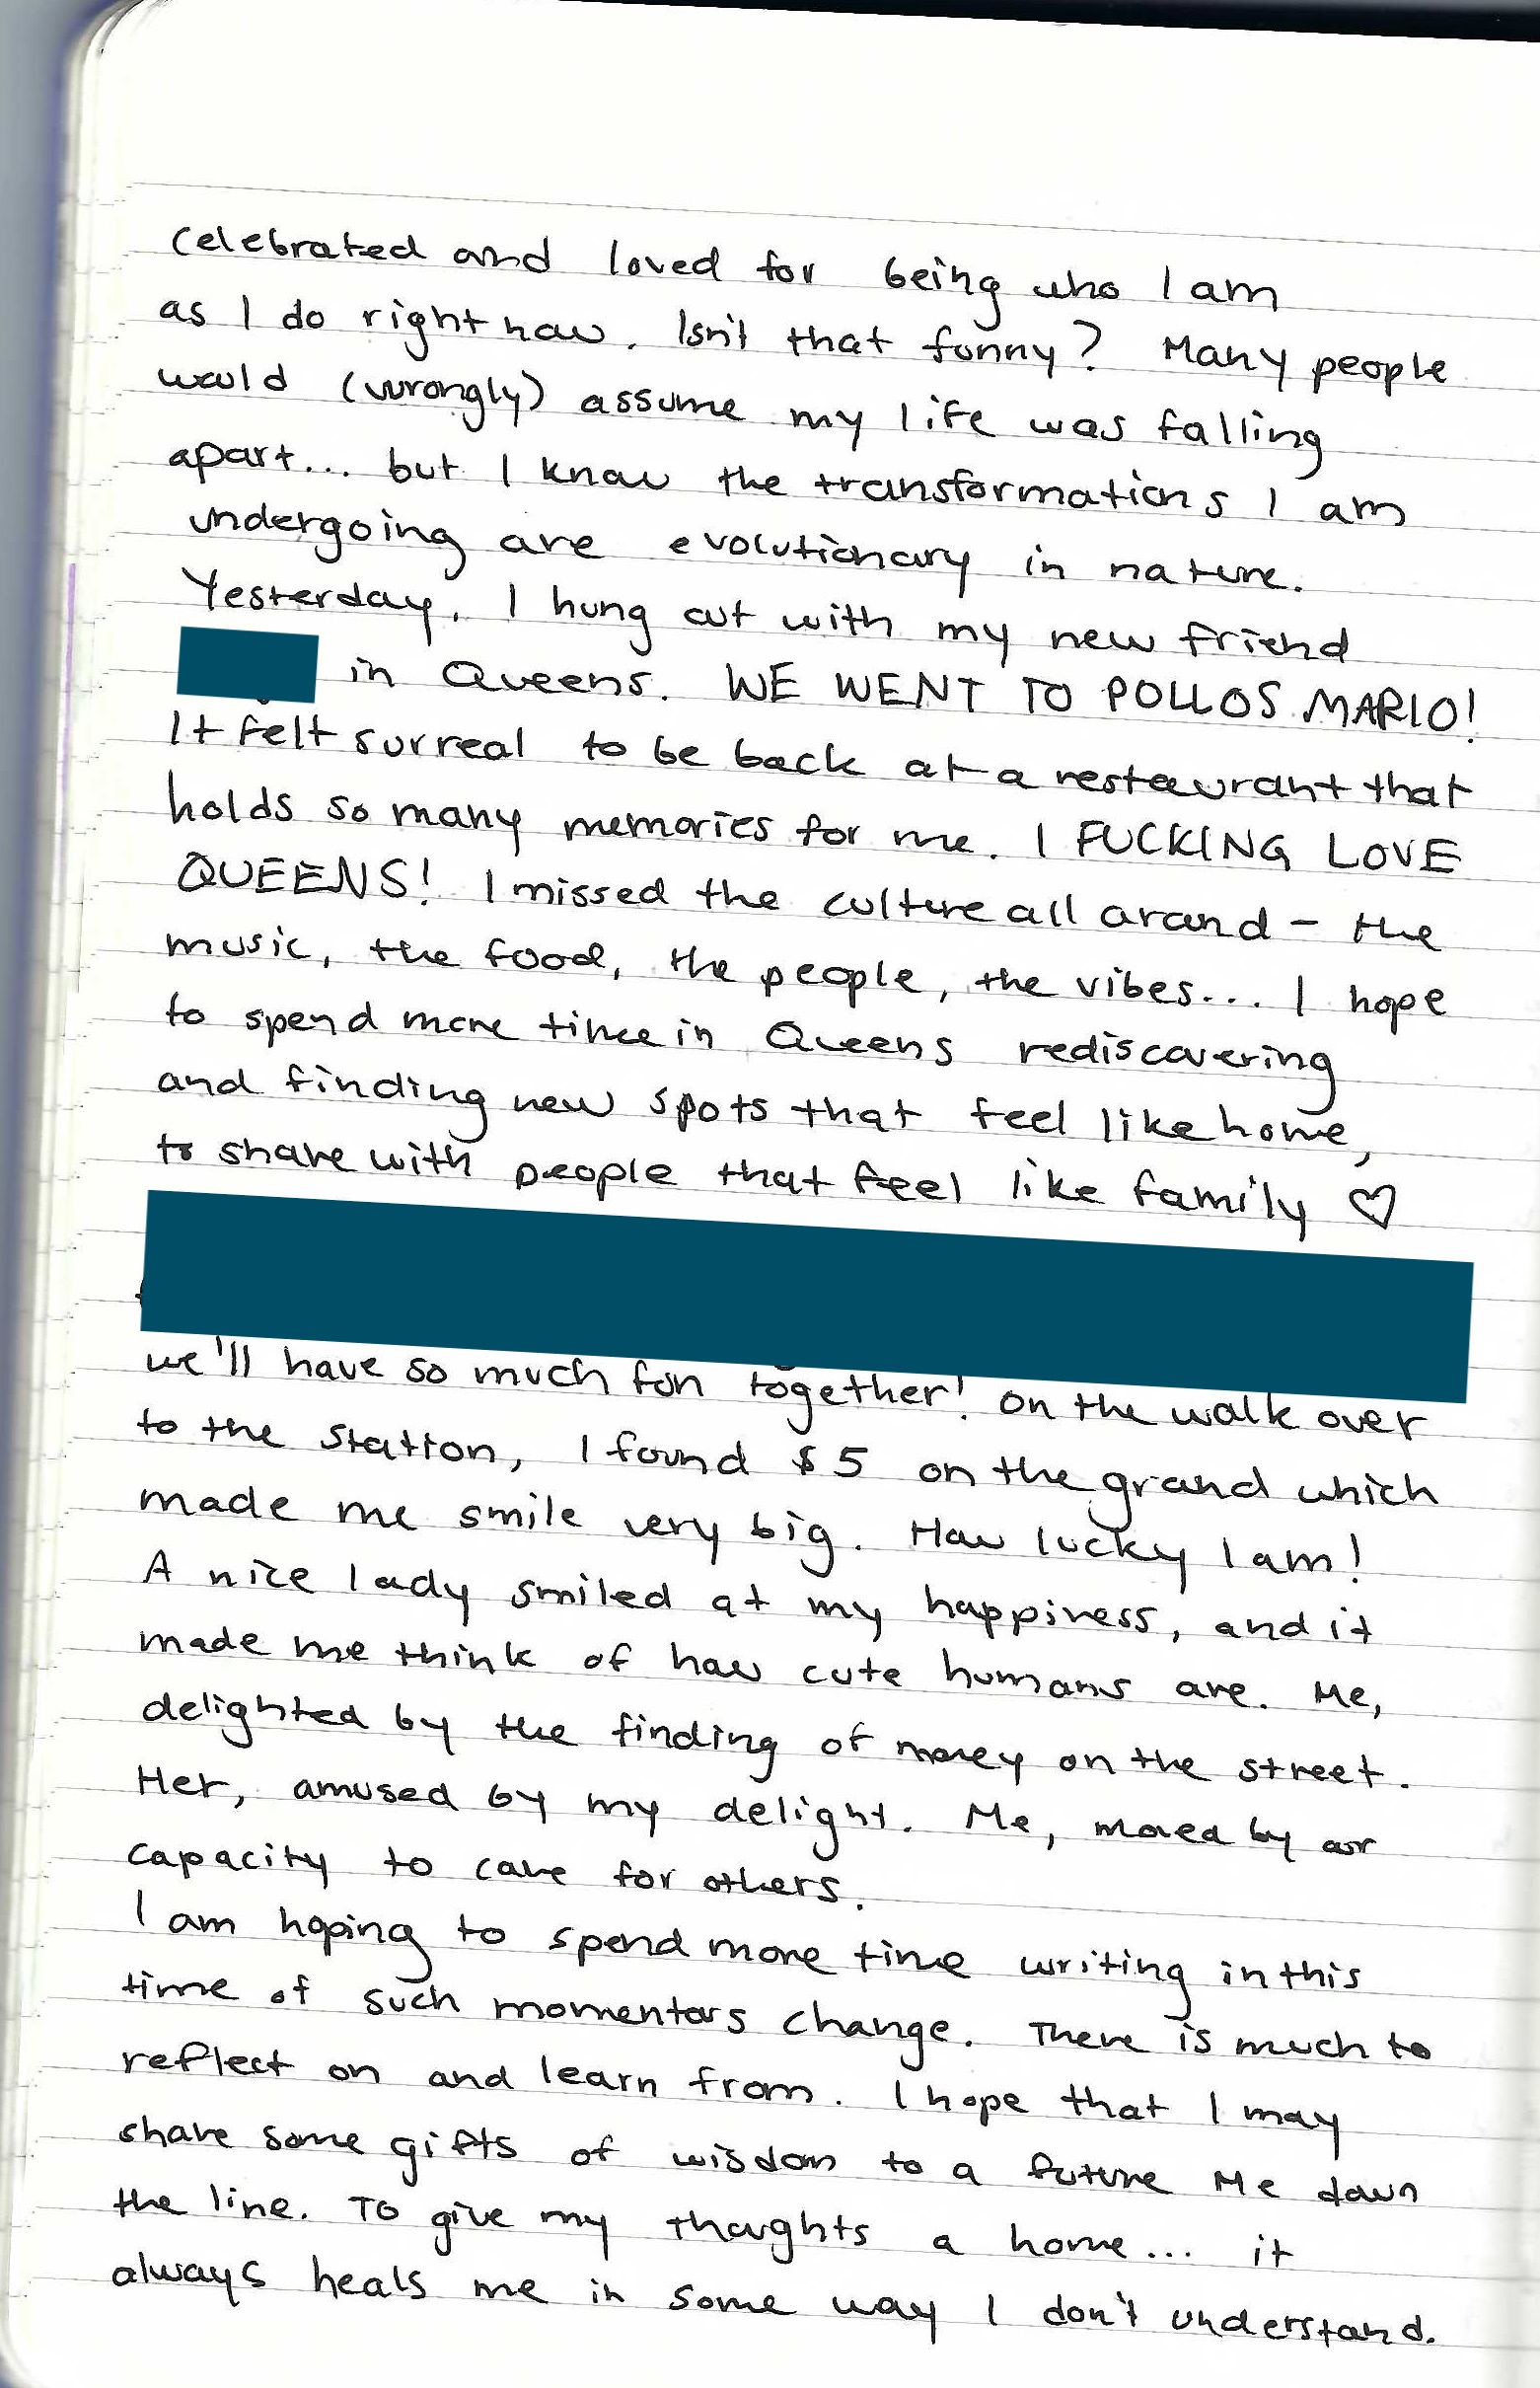 celebrated and loved for being who I am
as I do right now. Isn't that funny? Many people
would (wrongly) assume my life was falling
apart... but I know the transformations I am
undergoing are evolutionary in nature.
Yesterday, I hung out with my new friend
in Queens. WE WENT TO POLLOS MARIO!
It felt surreal to be back at a restaurant that
holds so many memories for me. I FUCKING LOVE
QUEENS! I missed the culture all around - the
music, the food, the people, the vibes... I hope
to spend more time in Queens rediscovering
and finding new spots that feel like home,
to share with people that feel like family ♡
we'll have so much fun together! on the walk over
to the station, I found $5 on the ground which
made me smile very big. How lucky I am!
A nice lady smiled at my happiness, and it
made me think of how cute humans are. Me,
delighted by the finding of money on the street.
Her, amused by my delight. Me, moved by our
capacity to care for others.
I am hoping to spend more time writing in this
time of such momentous change. There is much to
reflect on and learn from. I hope that I may
share some gifts of wisdom to a future Me down
the line. To give my thoughts a home... it
always heals me in some way I don't understand.